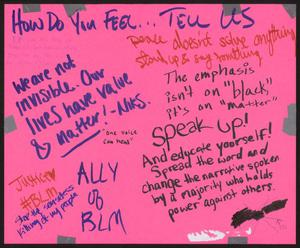 How Do You Feel... Tell Us
peace doesn't solve anything
stand up & say something
We are not
invisible. Our
lives have value
& matter! -Nks.
"one voice
can heal"
The emphasis
isn't on "black",
it's on "matter"
Speak up!
And educate yourself!
Spread the word and
change the narrative spoken
by a majority who holds
power against others.
JUSTICE
#BLM
stop the senseless
killing of my people
ALLY
of
BLM